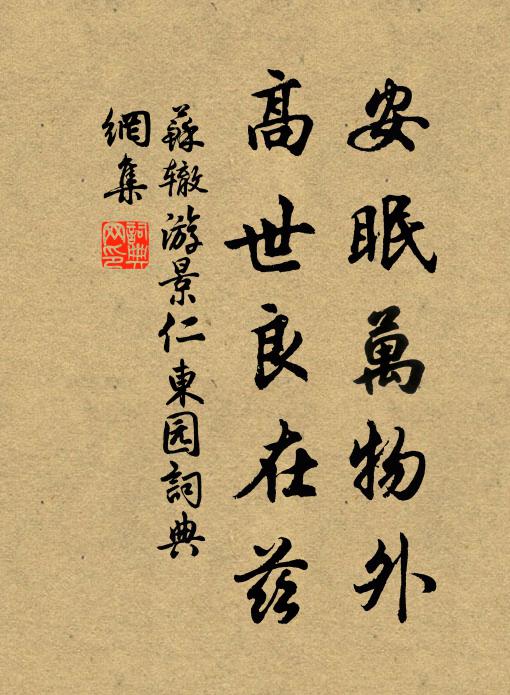 安眠萬物外
高世良在茲
蘇辙游景仁東园詞典
網集
詞典
网印